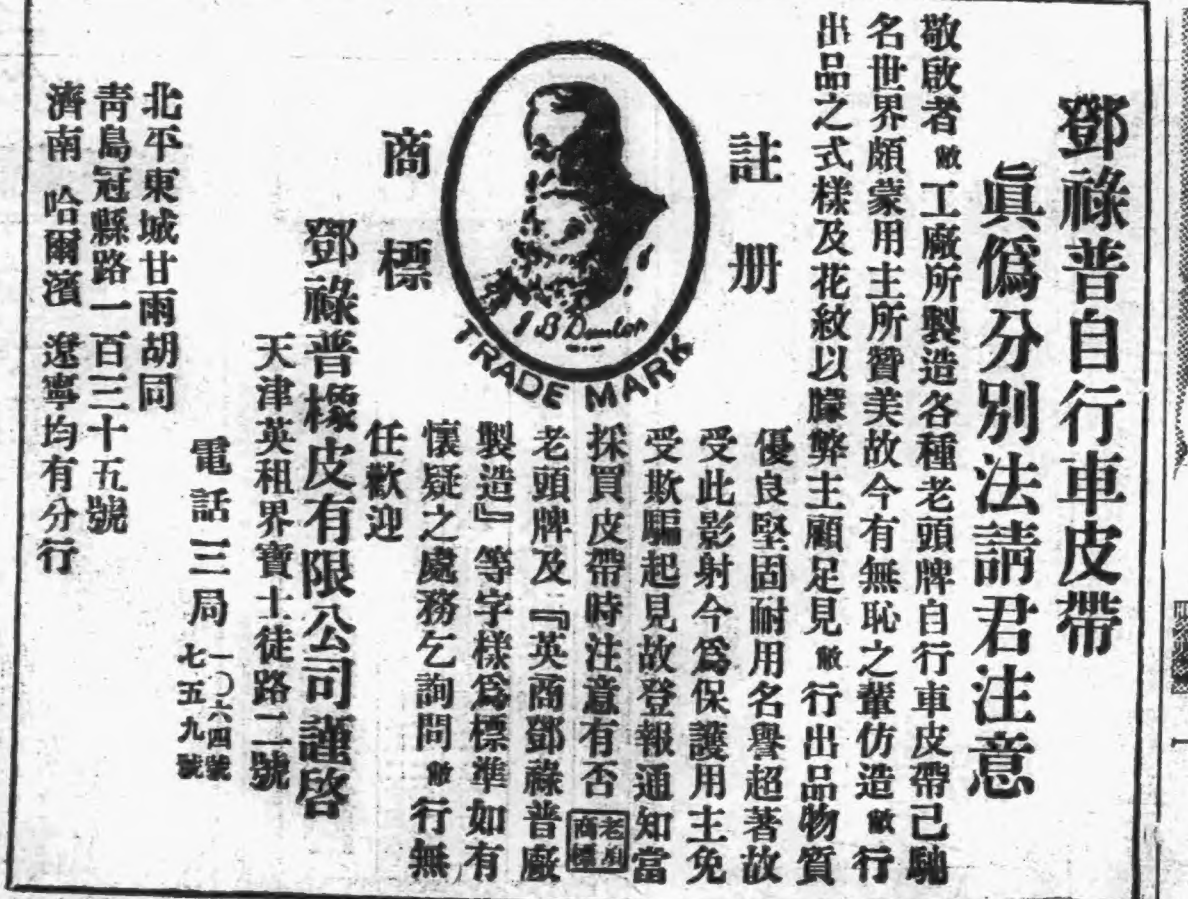 鄧祿普自行車皮帶
眞僞分別法請君注意
敬啟者敝工廠所製造各種老頭牌自行車皮帶己馳
名世界頗蒙用主所贊美故今有無恥之輩仿造敝行
出品之式樣及花紋以矇弊主顧足見敝行出品物質
優良堅固耐用名譽超著故
受此影射今爲保護用主免
受欺騙起見故登報通知當
採買皮帶時注意有否老頭商標
老頭牌及『英商鄧祿普廠
製造』等字樣爲標準如有
懷疑之處務乞詢問敝行無
任歡迎
註册
商標
J B Dunlop
TRADE MARK
鄧祿普橡皮有限公司謹啓
天津英租界寶士徒路二號
電話三局一〇六四號
七五九號
北平東城甘雨胡同
靑島冠縣路一百三十五號
濟南 哈爾濱 遼寧均有分行